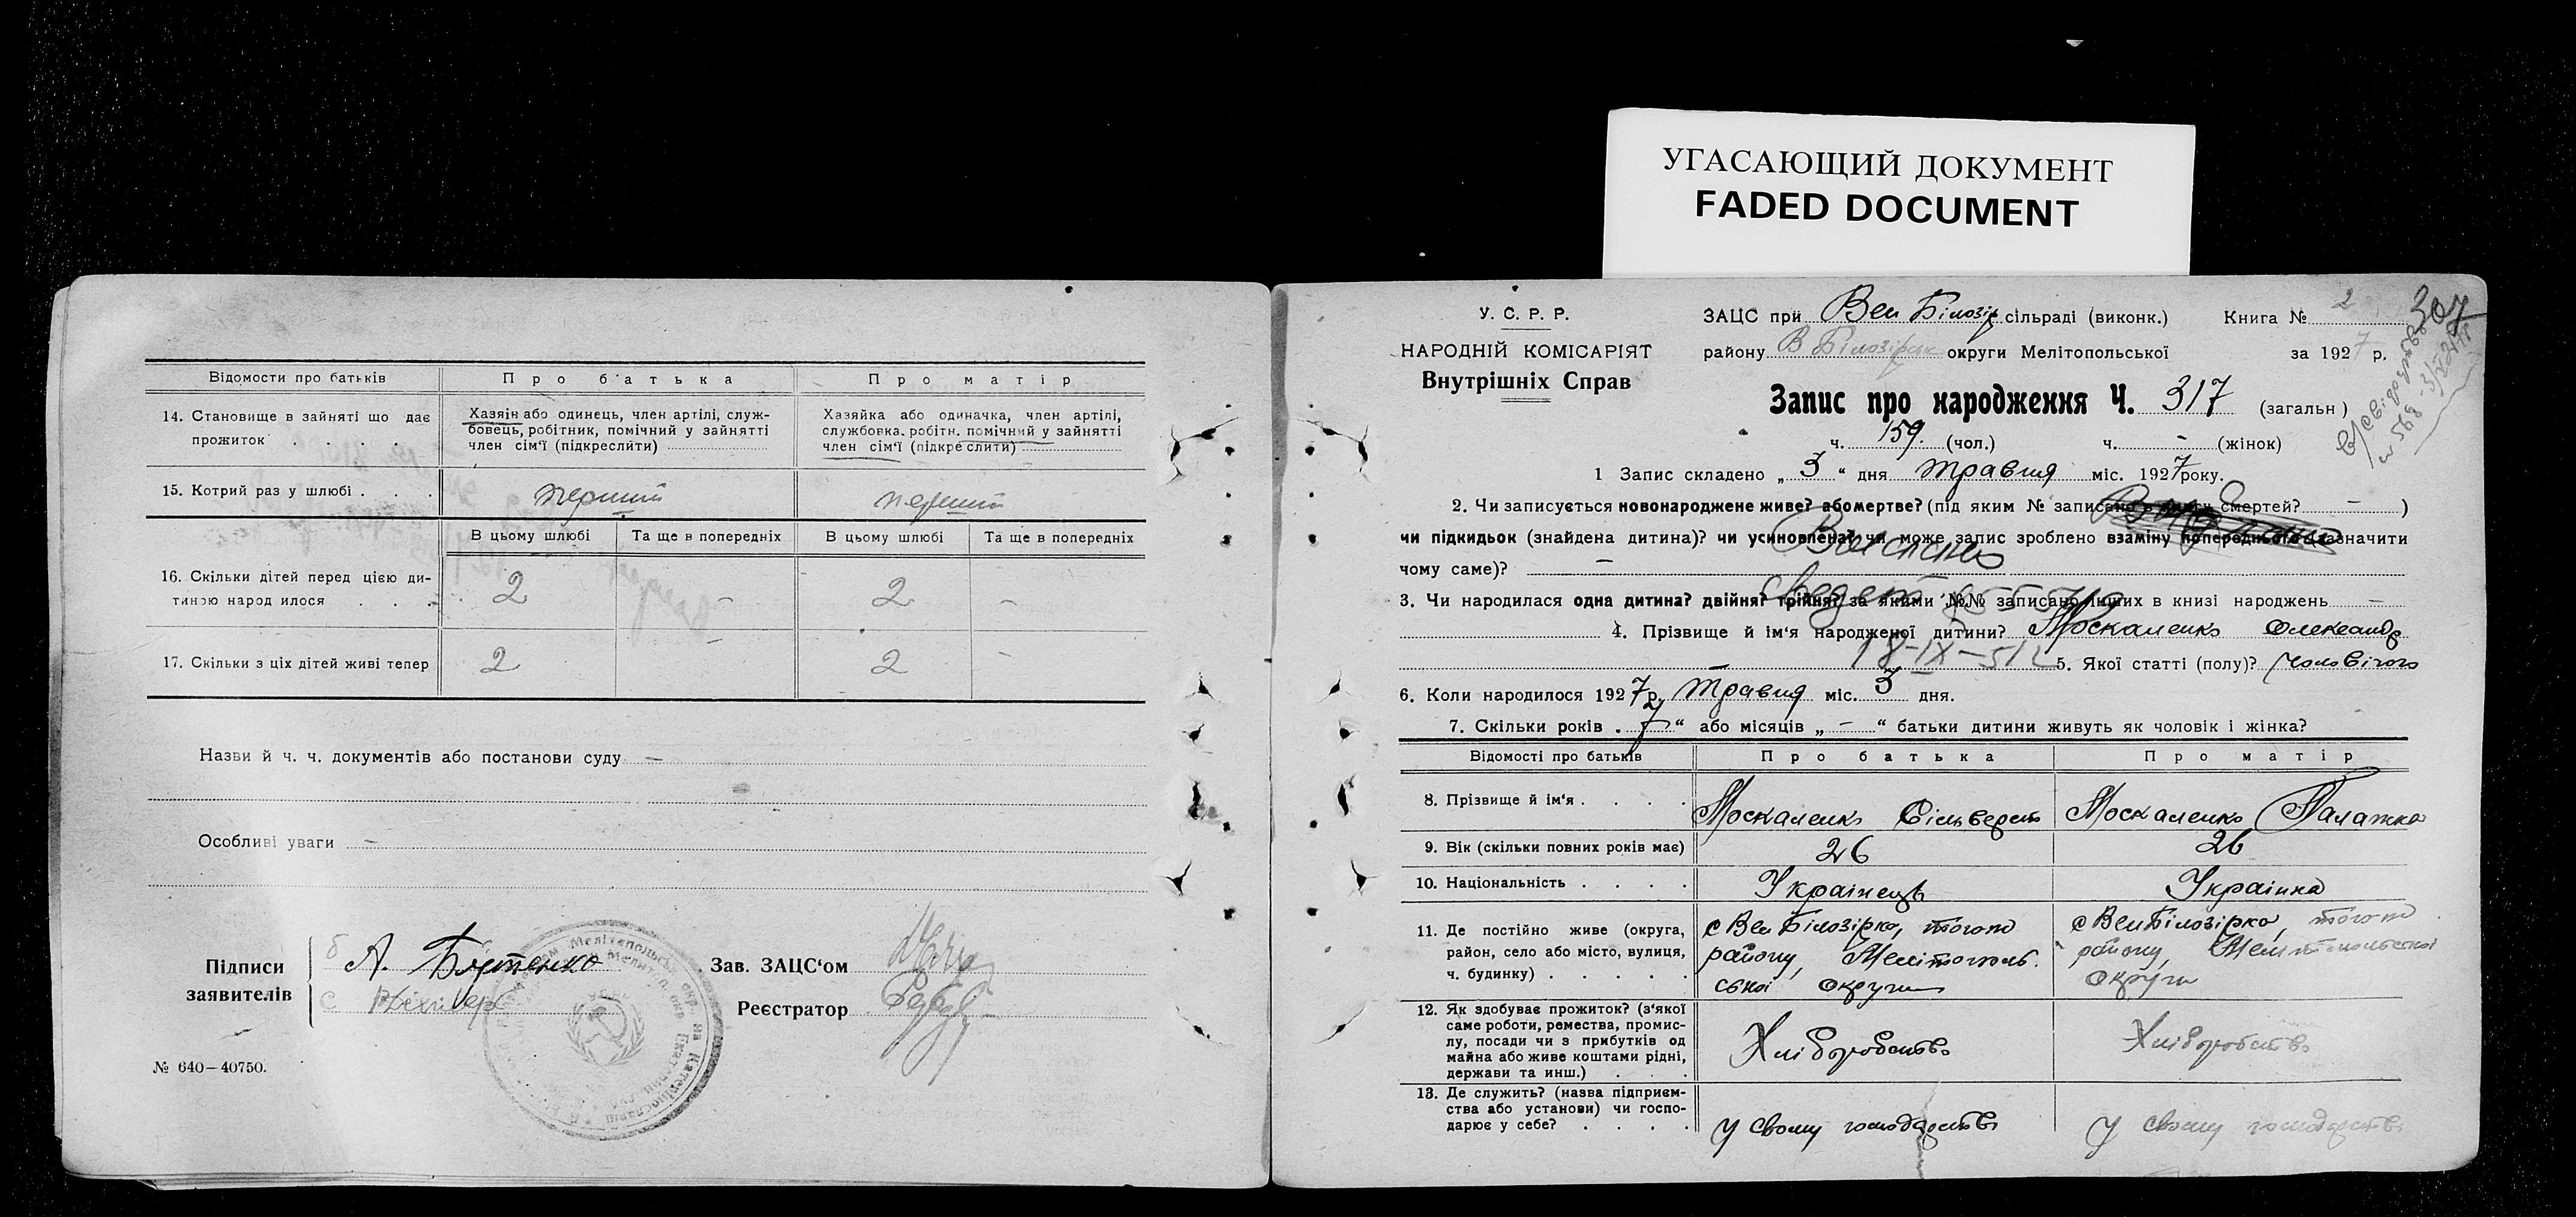 УГАСАЮЩИЙ ДОКУМЕНТ
FADED DOCUMENT
Відомости про батьків
Про батька
Про матір
14. Становище в зайняті що дає прожиток . . . .
Хазяін або одинець, член артілі, служ-
бовець, робітник, помічний у зайнятті
член сім'ї (підкреслити)
Хазяйка або одиначка, член артілі,
службовка, робітн. помічний у зайнятті
член сім'ї (підкреслити)
15. Котрий раз у шлюбі . . .
перший
перший
В цьому шлюбі
Та ще в попередніх
В цьому шлюбі
Та ще в попередніх
16. Скільки дітей перед цією ди-
тиною народилося . . .
2 – 2 –
17. Скільки з ціх дітей живі тепер
2 – 2 –
Назви й ч. ч. документів або постанови суду –
Особливі уваги –
Підписи
заявителів
А. Бутенко
Зав. ЗАЦС'ом
Реєстратор
№ 640—40750.
У. С. Р. Р.
НАРОДНІЙ КОМІСАРІЯТ
Внутрішніх Справ
ЗАЦС при Вел Білозір сільраді (виконк.) Книга № 2
307
району В Білозірськ округи Мелітопольської за 1927 р.
Запис про народження Ч. 317 (загальн)
ч. 159. (чол.) ч. – (жінок)
1 Запис складено „ 3 “ дня травня міс. 1927 року.
2. Чи записується новонароджене живе? або мертве? (під яким № записано в книгу смертей? – )
чи підкидьок (знайдена дитина)? чи усиновлена? чи може запис зроблено взаміну попереднього (зазначити
чому саме)? –
3. Чи народилася одна дитина? двійня? трійня? за якими №№ записано інших в книзі народжень –
4. Прізвище й ім'я народженої дитини? Москаленко Олександр
18-IX-51
– 5. Якої статті (полу)? чоловічого
6. Коли народилося 1927 р. травня міс. 3 дня.
7. Скільки років . 7 “ або місяців „ – “ батьки дитини живуть як чоловік і жінка?
Відомості про батьків
Про батька
Про матір
8. Прізвище й ім'я . . . .
Москаленко Сільверст
Москаленко Палажка
9. Вік (скільки повних років має)
26
26
10. Національність . . . .
Українець
Українка
11. Де постійно живе (округа,
район, село або місто, вулиця,
ч. будинку) . . . . .
с Вел Білозірка, того ж
району, Мелітополь.
ської округи
с Вел Білозірка, того ж
району, Мелітопольської
округи
12. Як здобуває прожиток? (з'якої
саме роботи, ремества, промис-
лу, посади чи з прибутків од
майна або живе коштами рідні,
держави та инш.) . . .
Хліборобство
Хліборобство
13. Де служить? (назва підприєм-
ства або установи) чи госпо-
дарює у себе? . . . .
у свому господарстві
у свому господарстві